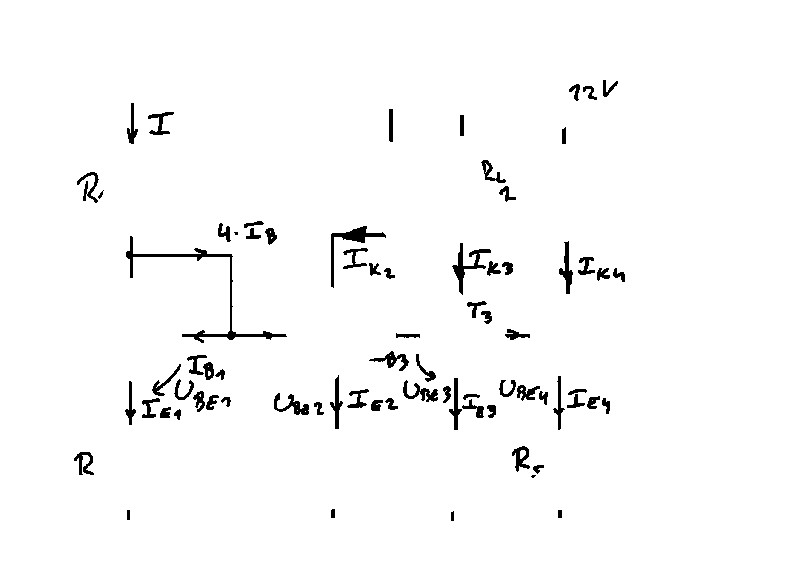 12V
I
R
RL
2
4·IB
IK2
IK3
IK4
T3
IB1
IE1
UBE1
UBE2
IE2
UBE3
UBE4
IE4
R